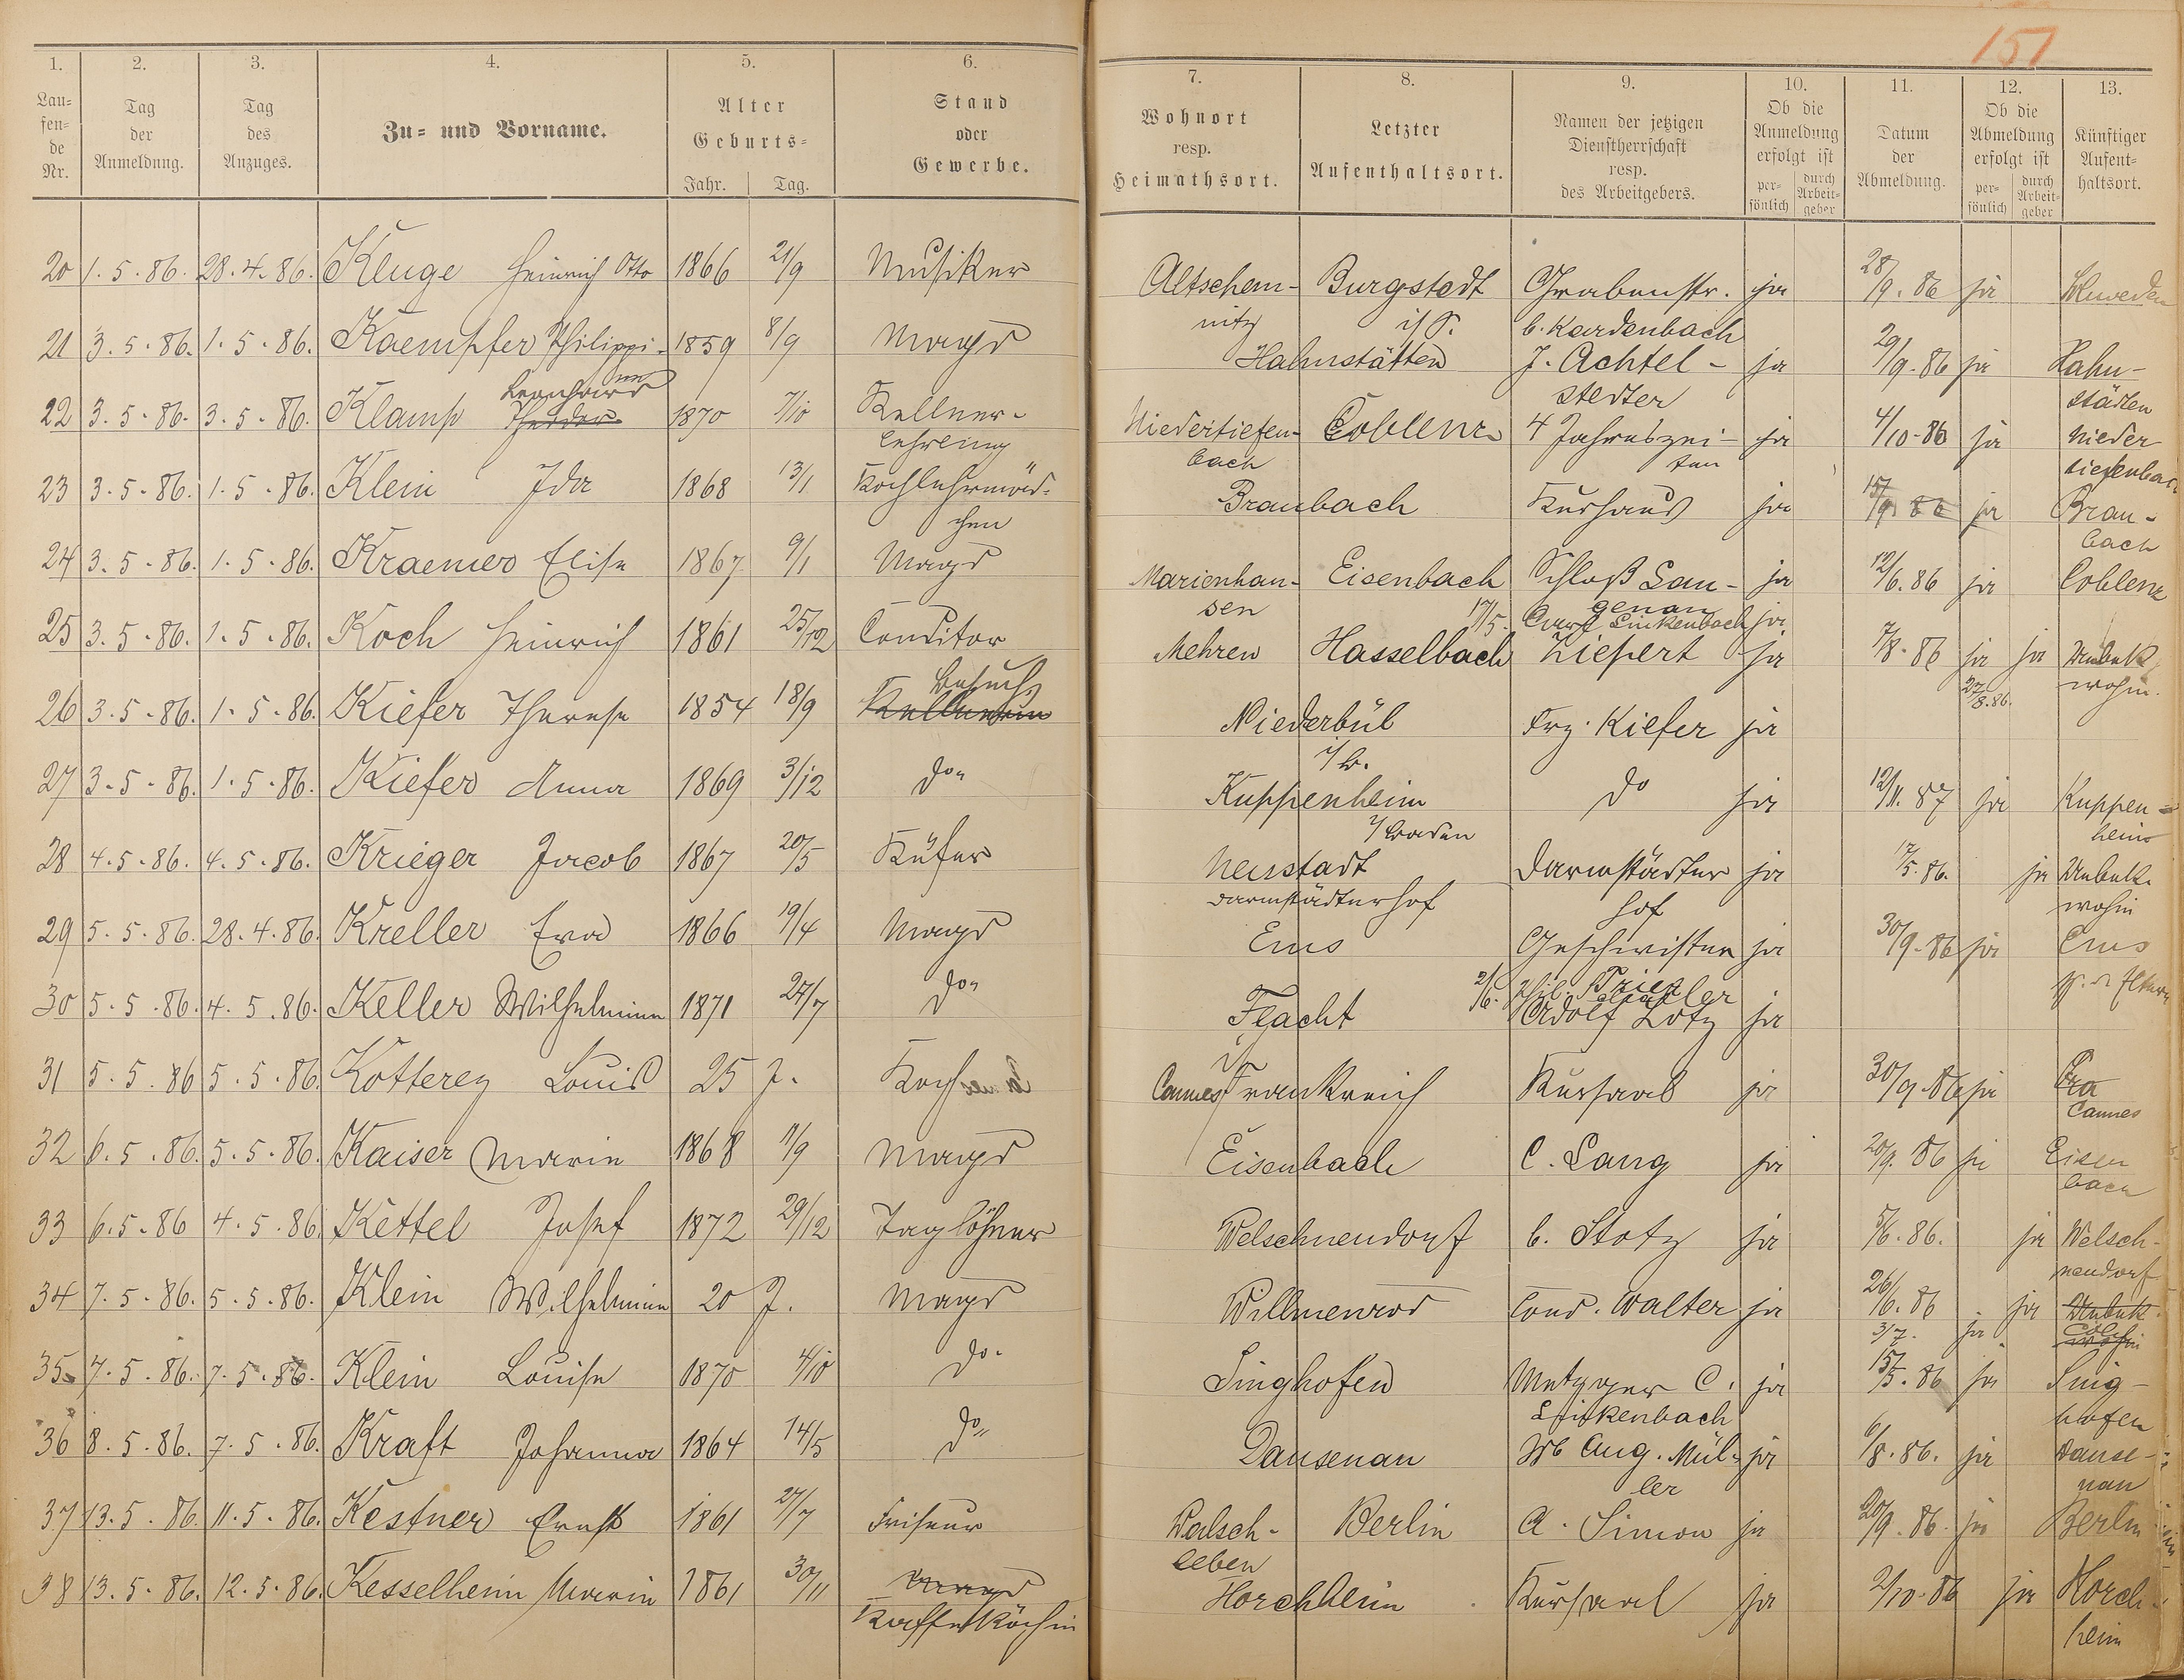 151
1. 2. 3. 4. 5. 6. 7. 8. 9. 10. 11. 12. 13.
Lau-
fen-
de
Nr.
Tag
der
Anmeldung.
Tag
des
Anzuges.
Zu- und Vorname.
Alter
Geburts-
Jahr. Tag.
Stand
oder
Gewerbe.
Wohnort
resp.
Heimathsort.
Letzter
Aufenthaltsort.
Namen der jetzigen
Dienstherrschaft
resp.
des Arbeitgebers.
Ob die
Anmeldung
erfolgt ist
per-
sönlich
durch
Arbeit-
geber
Datum
der
Abmeldung.
Ob die
Abmeldung
erfolgt ist
per-
sönlich
durch
Arbeit-
geber
Künftiger
Aufent-
haltsort.
20 1.5.86. 28.4.86. Kluge Heinrich Otto 1866 21/9 Musiker Altschem- Burgstedt Grabenstr. ja 28/9.86 ja Schweden
nitz i/S. b. Kardenbach
21 3.5.86. 1.5.86. Kaempfer Philippi- 1859 8/9 Magd Hahnstätten J. Achtel- ja 29/9.86 ja Hahn-
ne stedter städten
Leonhard
22 3.5.86. 3.5.86. Klamp 1870 7/10 Kellner- Niedertiefen- Coblenz 4 Jahreszei- ja 4/10.86 ja Nieder
lehrling bach ten tiefenbach
23 3.5.86. 1.5.86. Klein Ida 1868 13/1 Kochlehrmäd- Braubach Kurhaus ja 15/9.86 ja Brau-
chen bach
24 3.5.86. 1.5.86. Kraemer Elise 1867 9/1 Magd Marienhau- Eisenbach Schloß Lan- ja 12/6.86 ja Coblenz
sen genau
17/5. Carl Linkenbach ja
25 3.5.86. 1.5.86. Koch Heinrich 1861 25/12 Conditor Mehren Hasselbach Ziepert ja 7/8.86 ja ja Unbek.
27/8.86. wohin.
Besuch
26 3.5.86. 1.5.86. Kiefer Therese 1854 18/9 Kellnerin Niederbül Frz. Kiefer ja
i/B.
27 3.5.86. 1.5.86. Kiefer Anna 1869 3/12 do Kuppenheim do ja 12/11.87 ja Kuppen-
i/Baden heim
28 4.5.86. 4.5.86. Krieger Jacob 1867 20/5 Küfer Neustadt Darmstädter ja 17/5.86. ja Unbek.
Darmstädterhof hof wohin
29 5.5.86. 28.4.86. Kreller Eva 1866 19/4 Magd Ems Geschwister ja 30/9.86 ja Ems
2/6. Phil.
30 5.5.86. 4.5.86. Keller Wilhelmine 1871 24/7 do Flacht Adolf Lotz ja
31 5.5.86 5.5.86. Kotterez Louis 25 J. Koch Cannes Frankreich Kursaal ja 30/9.86 ja
Cannes
32 6.5.86. 5.5.86. Kaiser Marie 1868 11/9 Magd Eisenbach C. Lang ja 20/9.86 ja Eisen
bach
33 6.5.86 4.5.86 Kettel Josef 1872 29/12 Taglöhner Welschneudorf C. Stotz ja 5/6.86. ja Welsch-
neudorf
34 7.5.86. 5.5.86. Klein Wilhelmine 20 J. Magd Willmenrod Cond. Walter ja 26/6.86 ja Unbek.
3/7. ja wohin
35 7.5.86. 7.5.86. Klein Louise 1870 4/10 do. Singhofen Metzger C. ja 15/5.86 ja Sing-
Linkenbach hofen
36 8.5.86. 7.5.86. Kraft Johanna 1864 14/5 do Dausenau Wb Aug. Mül- ja 6/8.86. ja Dause-
ler nau
37 13.5.86. 11.5.86. Kestner Ernst 1861 27/7 Friseur Walsch- Berlin A. Simon ja 20/9.86. ja Berlin
leben
38 13.5.86. 12.5.86. Kesselheim Maria 1861 30/11 Magd Horchheim Kursaal ja 2/10.86 ja Horch-
Kaffeeköchin heim